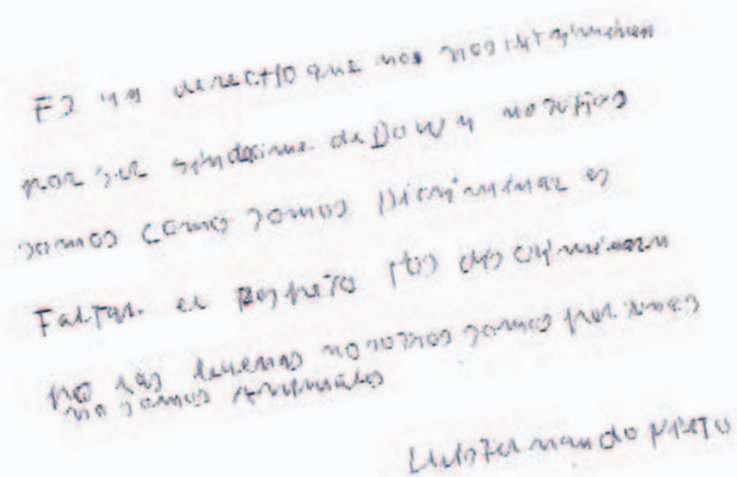 Es un derecto que nos nos
por ser sindrome de Down nosotros
somos como somos Dicriminar es
Faltar el Respeto
no las tenemos nosotros somos personas
no somos Animales
Luis Fernando Prieto